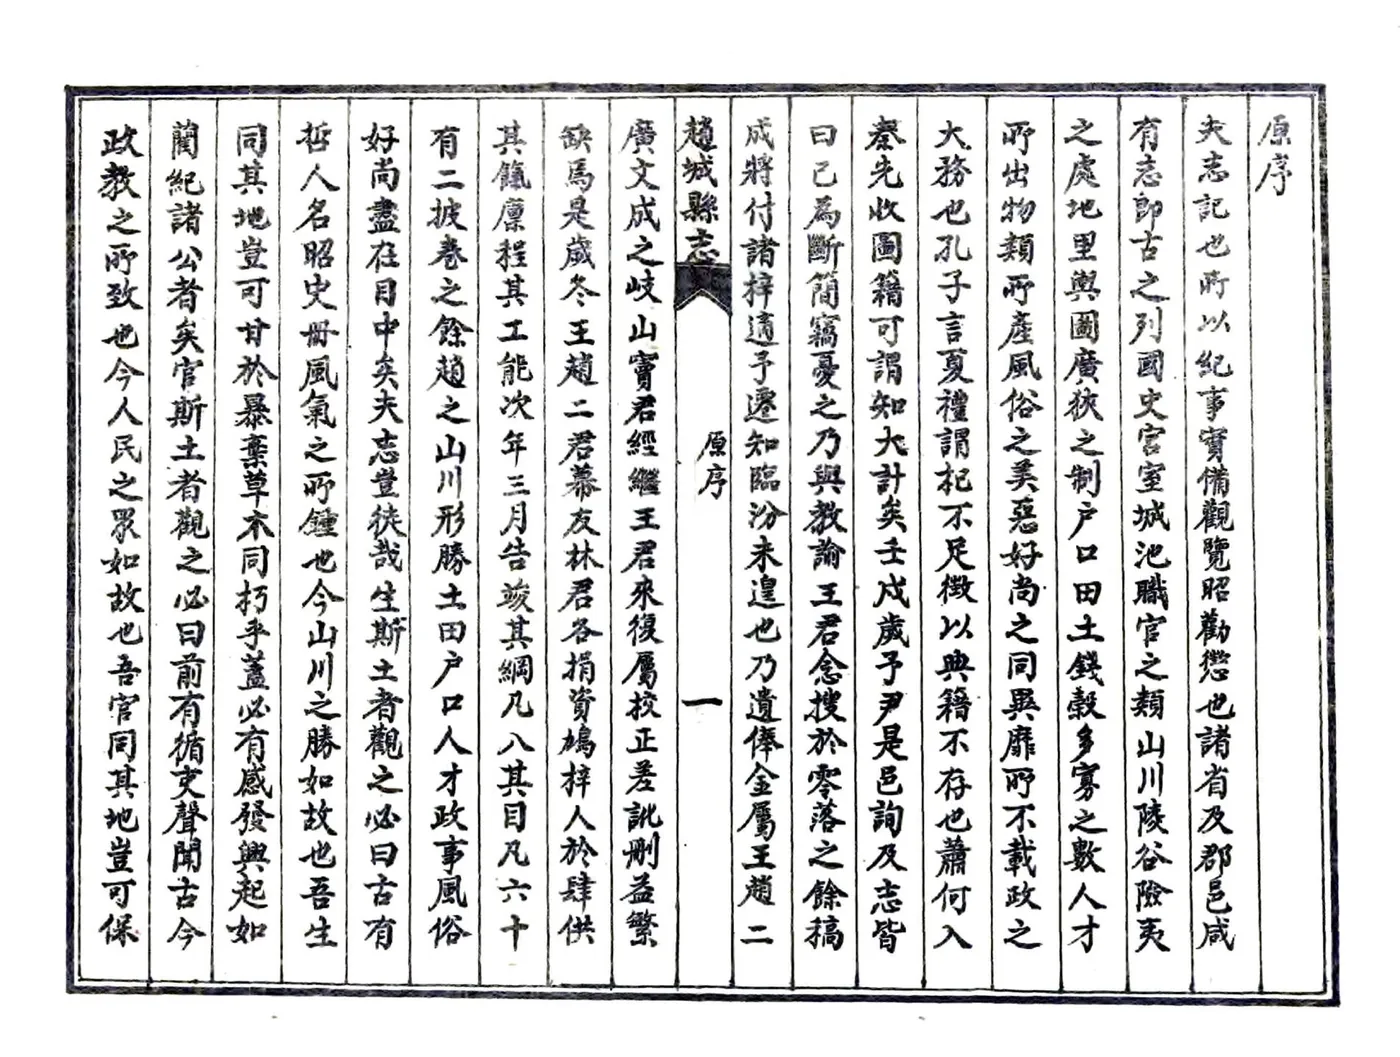 原序
夫志記也所以紀事實備觀覽昭勸懲也諸省及郡邑咸
有志即古之列國史宮室城池職官之類山川陵谷險夷
之處地里輿圖廣狹之制户口田土錢穀多寡之數人才
所出物類所產風俗之美惡好尚之同異靡所不載政之
大務也孔子言夏禮謂杞不足徵以典籍不存也蕭何入
秦先收圖籍可謂知大計矣壬戍歲予尹是邑詢及志皆
曰已為斷簡竊憂之乃與教諭王君念搜於零落之餘稿
成將付諸梓適予遷知臨汾未遑也乃遺俸金屬王趙二
趙城縣志
原序
一
廣文成之岐山竇君經繼王君來復屬校正差訛刪益繁
缺焉是歲冬王趙二君幕友林君各捐資鳩梓人於肆供
其餼廩程其工能次年三月告竣其綱凡八其目凡六十
有二披卷之餘趙之山川形勝土田户口人才政事風俗
好尚盡在目中矣夫志豈徒哉生斯土者觀之必曰古有
哲人名昭史冊風氣之所鍾也今山川之勝如故也吾生
同其地豈可甘於暴棄草木同朽乎蓋必有感發興起如
藺紀諸公者矣官斯土者觀之必曰前有循吏聲聞古今
政教之所致也今人民之眾如故也吾官同其地豈可保